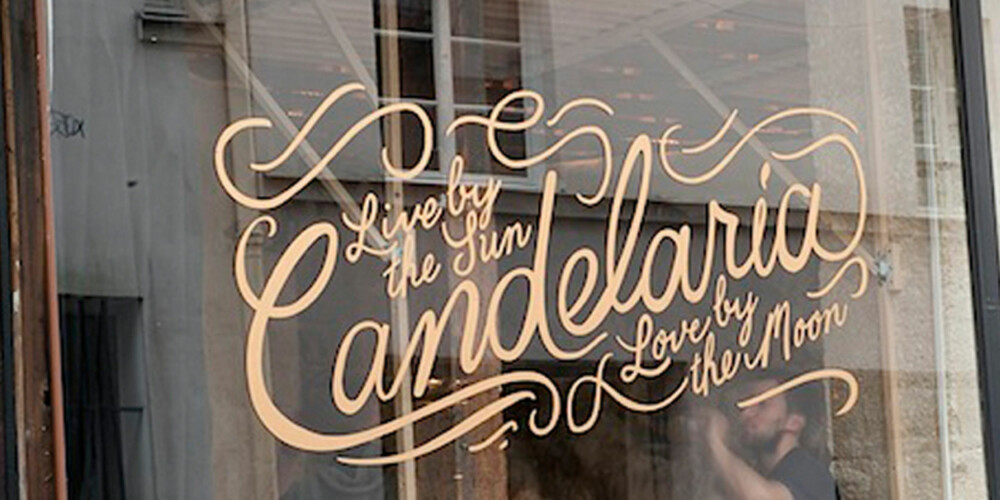 Live by
the Sun
Candelaria
Love by
the Moon